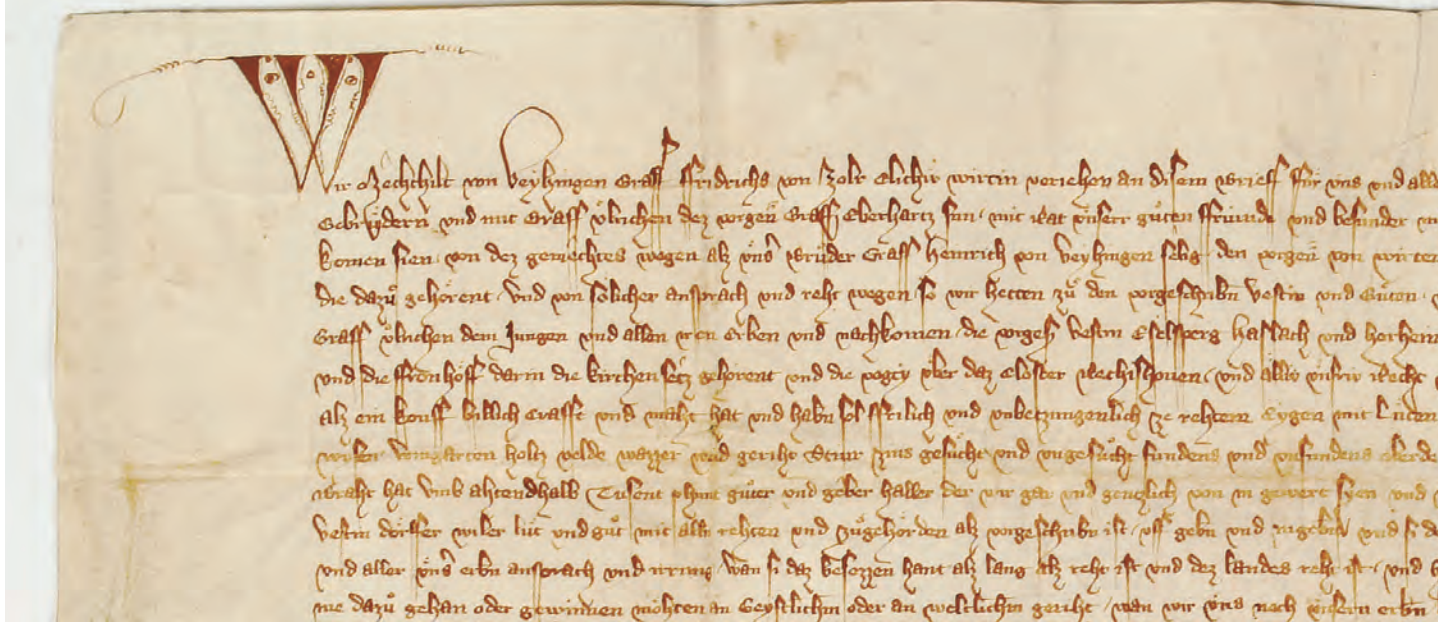 Wir Mechthilt von Veyhingen Graff ffridrichs von Zolr Elichiv wirtin veriehen an disem Brieff für vns und alle
Gebrůdern vnd mit Graff v̊lrichen dez vorgen̄ Graff Eberhartz sun mit Rat vnserr gůten ffriunde vnd besunder
komen sien von dez gemechtes wegen alz vns̄ Brůder Graff Heinrich von Veyhingen selig den vorgen̄ von wirten
die dazů gehörent Vnd von sölicher ansprach vnd reht wegen so wir hetten zů den vorgeschribn̄ Vestin vnd Gůten
Graff v̊lrichen dem Jungen vnd allen iren Erben vnd nachkomen die vorges̄ Vestin Eselsperg haslach vnd horhein
vnd die ffronhöff darin die kirchensetz gehorent vnd die vogty v̊ber daz Closter Rechishouen vnd alliv vnsriv Recht
alz ein kouff billich Craffte vnd maht hat vnd habn̄ sol ffrilich vnd vnbetzwngenlich ze rehtem Eygen mit Lüten
wisen Bomgarten holtz velde wazzer vnd geriht Stiur zins gesůcht vnd vngesůcht fundens vnd vnfundens oberde
Braht hat vmb ahtendhalb Tusent phunt gůter vnd geber haller der wir gar vnd gentzlich von in gewert syen vnd
Vestin dörffer wiler lüt vnd gůt mit alln̄ rehten vnd zůgehörden alz vorgeschribn̄ ist vff gebn̄ vnd ingebn̄ vnd si
vnd aller vns̄ erbn̄ ansprach vnd irrung wan si daz besezzen hant alz lang alz reht ist vnd dez landes reht ist vnd
me dazů gehan oder gewinnen möhten an Geystlichm̄ oder an weltlichm̄ geriht wan wir vns noch vnsern erbn̄